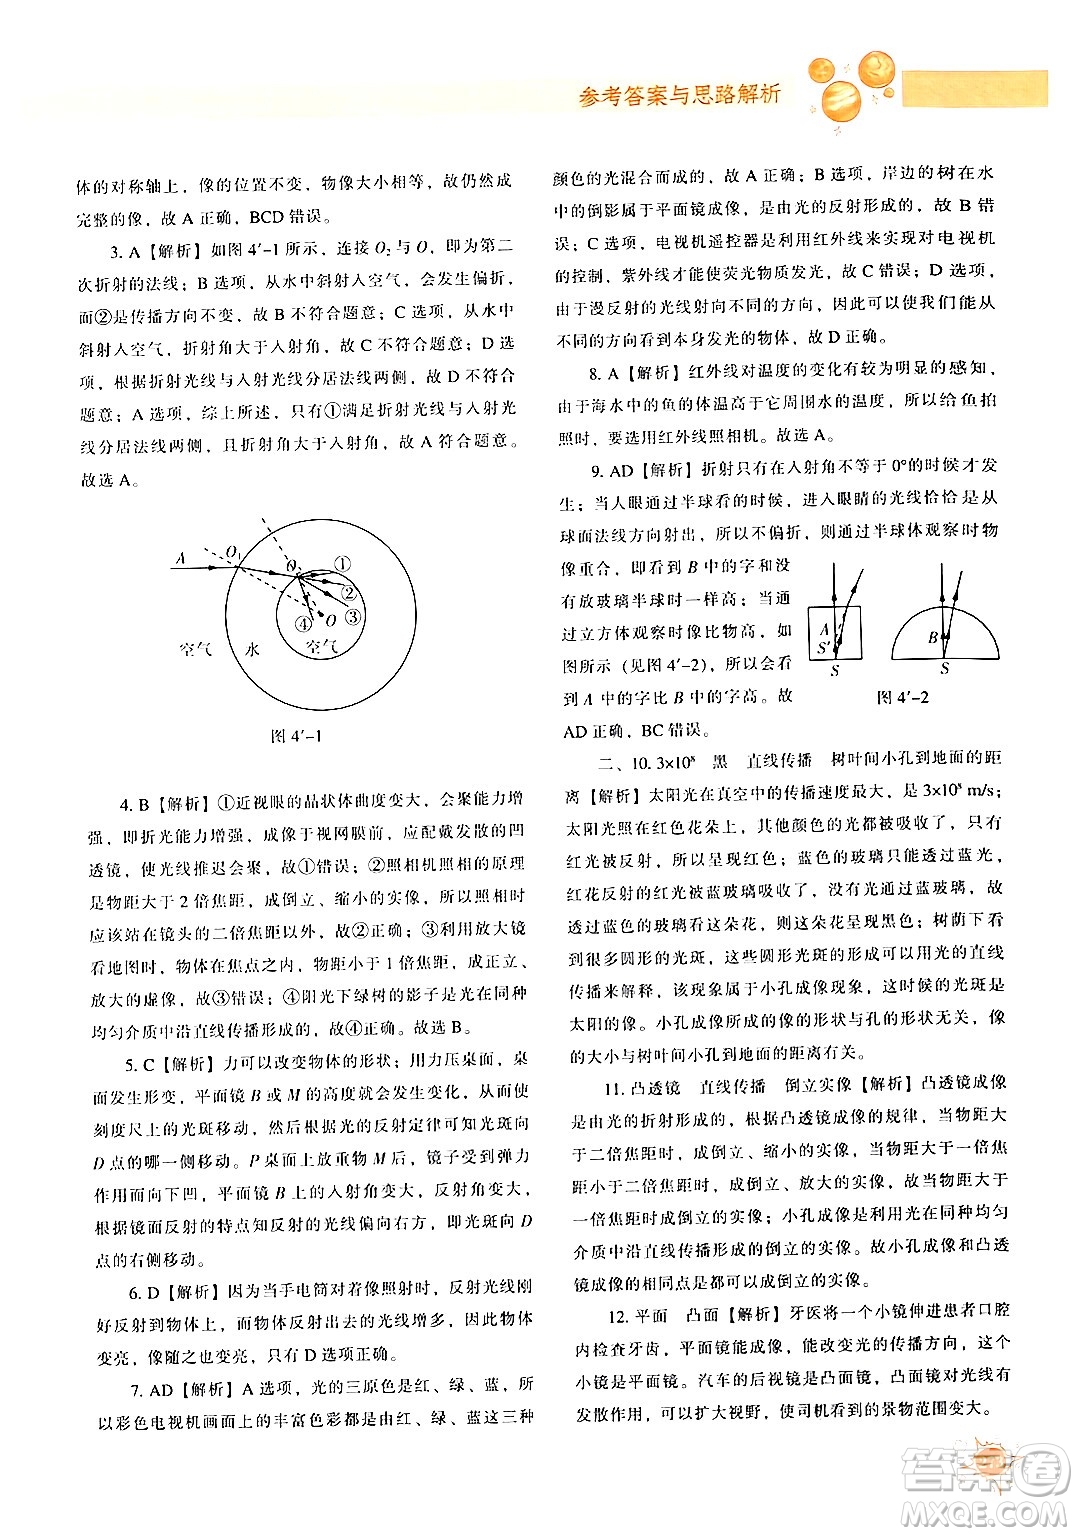 参考答案与思路解析
体的对称轴上，像的位置不变，物像大小相等，故仍然成
完整的像，故 A 正确，BCD 错误。
3. A【解析】如图 4′-1 所示，连接 O₂ 与 O，即为第二
次折射的法线；B 选项，从水中斜射入空气，会发生偏折，
而②是传播方向不变，故 B 不符合题意；C 选项，从水中
斜射入空气，折射角大于入射角，故 C 不符合题意；D 选
项，根据折射光线与入射光线分居法线两侧，故 D 不符合
题意；A 选项，综上所述，只有①满足折射光线与入射光
线分居法线两侧，且折射角大于入射角，故 A 符合题意。
故选 A。
A
O₁
①
②
③
④
O
空气
水
空气
图 4′-1
4. B【解析】①近视眼的晶状体曲度变大，会聚能力增
强，即折光能力增强，成像于视网膜前，应配戴发散的凹
透镜，使光线推迟会聚，故①错误；②照相机照相的原理
是物距大于 2 倍焦距，成倒立、缩小的实像，所以人
应该站在镜头的二倍焦距以外，故②正确；③利用放大镜
看地图时，物体在焦点之内，物距小于 1 倍焦距，成正立、
放大的虚像，故③错误；④阳光下绿树的影子是光在同种
均匀介质中沿直线传播形成的，故④正确。故选 B。
5. C【解析】力可以改变物体的形状；用力压桌面，桌
面发生形变，平面镜 B 或 M 的高度就会发生变化，从而使
刻度尺上的光斑移动，然后根据光的反射定律可知光斑向
D 点的哪一侧移动。P 桌面上放重物 M 后，镜子受到弹力
作用而向下凹，平面镜 B 上的入射角变大，反射角变大，
根据镜面反射的特点知反射的光线偏向右方，即光斑向 D
点的右侧移动。
6. D【解析】因为当手电筒对着像照射时，反射光线刚
好反射到物体上，而物体反射出去的光线增强，这样物体
变亮，像随之也变亮，只有 D 选项正确。
7. AD【解析】A 选项，光的三原色是红、绿、蓝，所
以彩色电视机画面上的丰富色彩都是由红、绿、蓝这三种
颜色的光混合而成的，故 A 正确；B 选项，岸边的树在水
中的倒影属于平面镜成像，是由光的反射形成的，故 B 错
误；C 选项，电视机遥控器是利用红外线来实现对电视机
的控制，紫外线才能使荧光物质发光，故 C 错误；D 选项，
由于漫反射的光线射向不同的方向，因此可以使我们能从
不同的方向看到本身发光的物体，故 D 正确。
8. A【解析】红外线对温度的变化有较为明显的感知，
由于海水中的鱼的体温高于它周围水的温度，所以给鱼拍
照时，要选用红外线照相机。故选 A。
9. AD【解析】折射只有在入射角不等于 0°的时候才发
生；当人眼通过半球看的时候，进入眼睛的光线恰恰是从
球面法线方向射出，所以不偏折，则通过半球体观察时物
像重合，即看到 B 中的字和没
有放玻璃半球时一样高；当通
过立方体观察时像比物高，如
图所示（见图 4′-2），所以会看
到 A 中的字比 B 中的字高。故
AD 正确，BC 错误。
A
S′
S
B
S
图 4′-2
二、10. 3×10⁸　黑　直线传播　树叶间小孔到地面的距
离【解析】太阳光在真空中的传播速度最大，是 3×10⁸ m/s；
太阳光照在红色花朵上，其他颜色的光都被吸收了，只有
红光被反射，所以呈现红色；蓝色的玻璃只能透过蓝光，
红花反射的红光被蓝玻璃吸收了，没有光透过蓝玻璃，故
透过蓝色的玻璃看这朵花，则这朵花呈现黑色；树荫下看
到很多圆形的光斑，这些圆形光斑的形成可以用光的直线
传播来解释，该现象属于小孔成像现象，这些圆形光斑是
太阳的像。小孔成像所成的像的形状与孔的形状无关，像
的大小与树叶间小孔到地面的距离有关。
11. 凸透镜　直线传播　倒立实像【解析】凸透镜成像
是由光的折射形成的，根据凸透镜成像的规律，当物距大
于二倍焦距时，成倒立、缩小的实像，当物距大于一倍焦
距小于二倍焦距时成倒立、放大的实像，故当物距大于
一倍焦距时成倒立的实像；小孔成像是利用光在同种均匀
介质中沿直线传播形成的倒立的实像。故小孔成像和凸透
镜成像的相同点是都可以成倒立的实像。
12. 平面　凸面【解析】牙医将一个小镜伸进患者口腔
内检查牙齿，平面镜能成像，能改变光的传播方向，这个
小镜是平面镜。汽车的后视镜是凸面镜，凸面镜对光线有
发散作用，可以扩大视野，使司机看到的景物范围变大。
答案圈
MXQE.COM